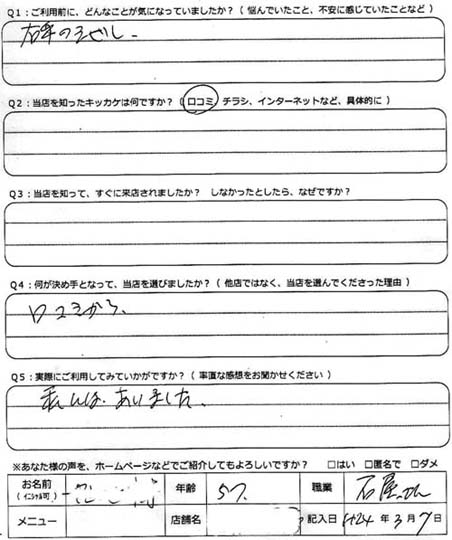 Q1：ご利用前に、どんなことが気になっていましたか？（ 悩んでいたこと、不安に感じていたことなど ）
Q2：当店を知ったキッカケは何ですか？（ 口コミ チラシ、インターネットなど、具体的に ）
Q3：当店を知って、すぐに来店されましたか？ しなかったとしたら、なぜですか？
Q4：何が決め手となって、当店を選びましたか？（ 他店ではなく、当店を選んでくださった理由 ）
口コミから、
Q5：実際にご利用してみていかがですか？（ 率直な感想をお聞かせください ）
あいました、
※あなた様の声を、ホームページなどでご紹介してもよろしいですか？ □はい □匿名で □ダメ
お名前 年齢 57. 職業 石屋さん
（イニシャル可）
メニュー 店舗名 記入日 H24 年 3 月 7 日